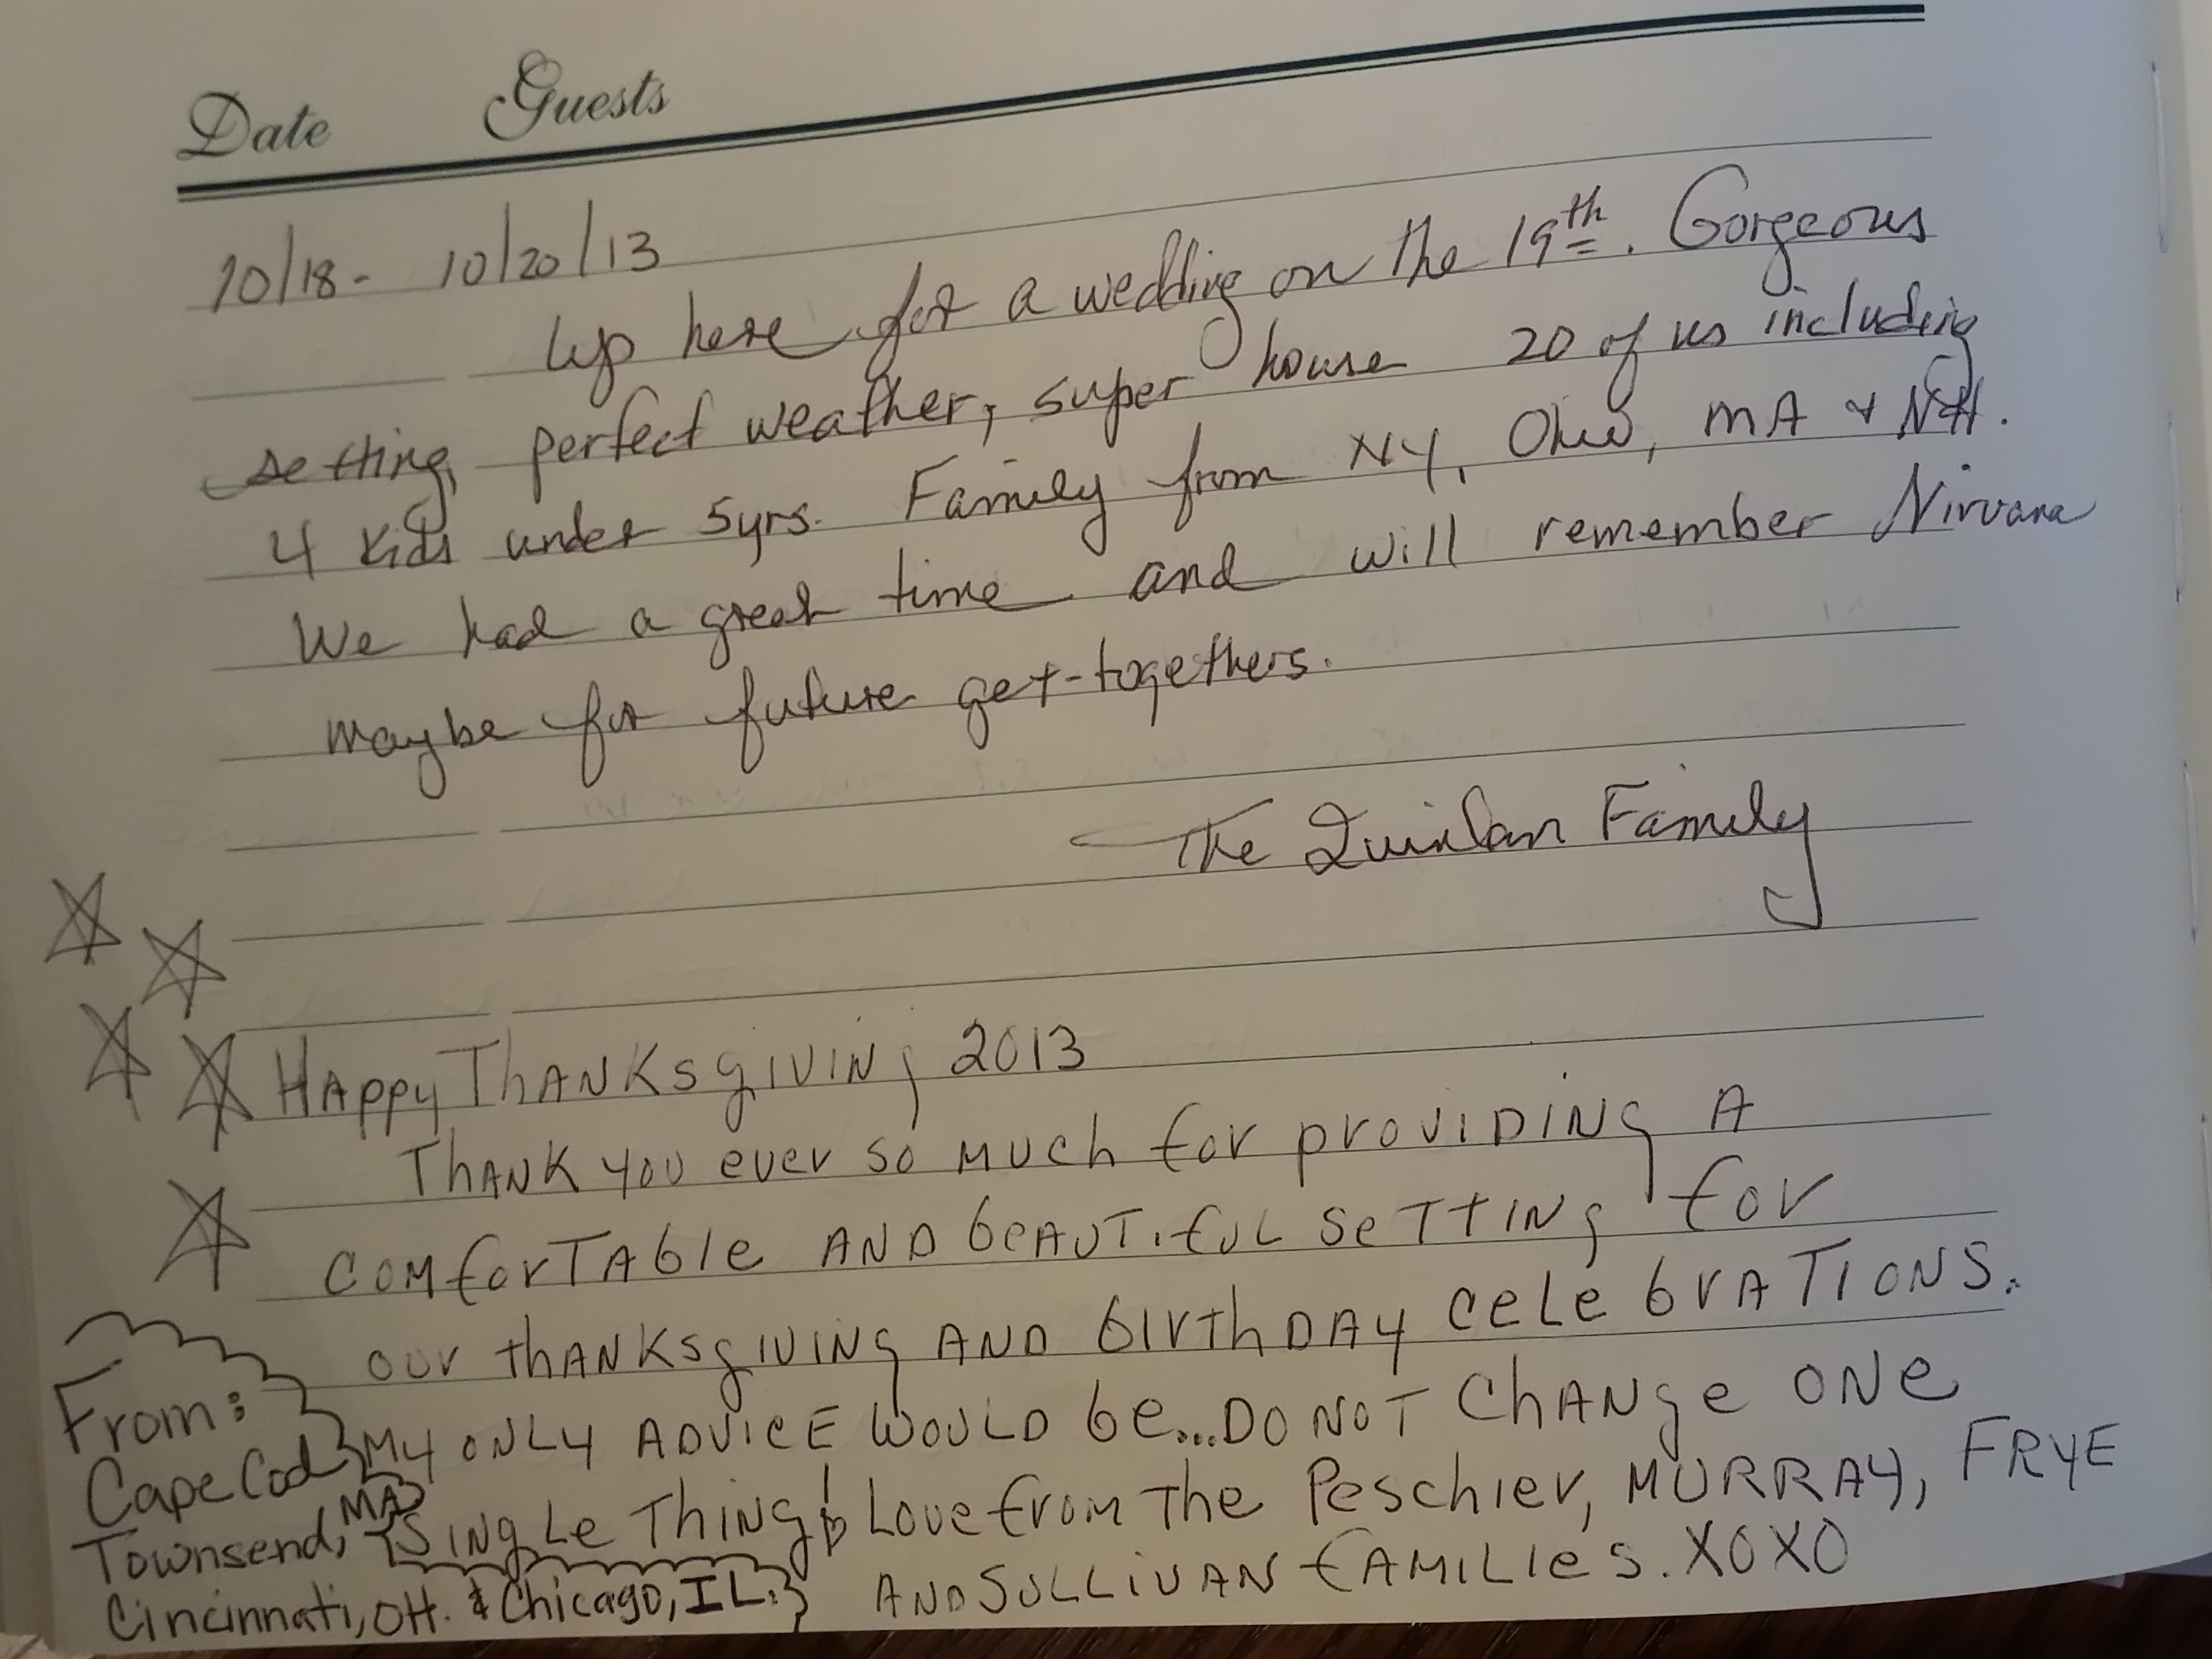 Date Guests
10/18 - 10/20/13
Up here for a wedding on the 19th. Gorgeous
setting, perfect weather, super house 20 of us including
4 kids under 5yrs. Family from NY, Ohio, MA & NH.
We had a great time and will remember Nirvana
maybe for future get-togethers.
The Quinlan Family
Happy Thanksgiving 2013
Thank you ever so much for providing a
comfortable and beautiful setting for
our thanksgiving and birthday celebrations.
My only advice would be... Do not change one
single thing! Love from the Peschier, Murray, Frye
and Sullivan families. XOXO
From:
Cape Cod
Townsend, MA
Cincinnati, OH. & Chicago, IL.